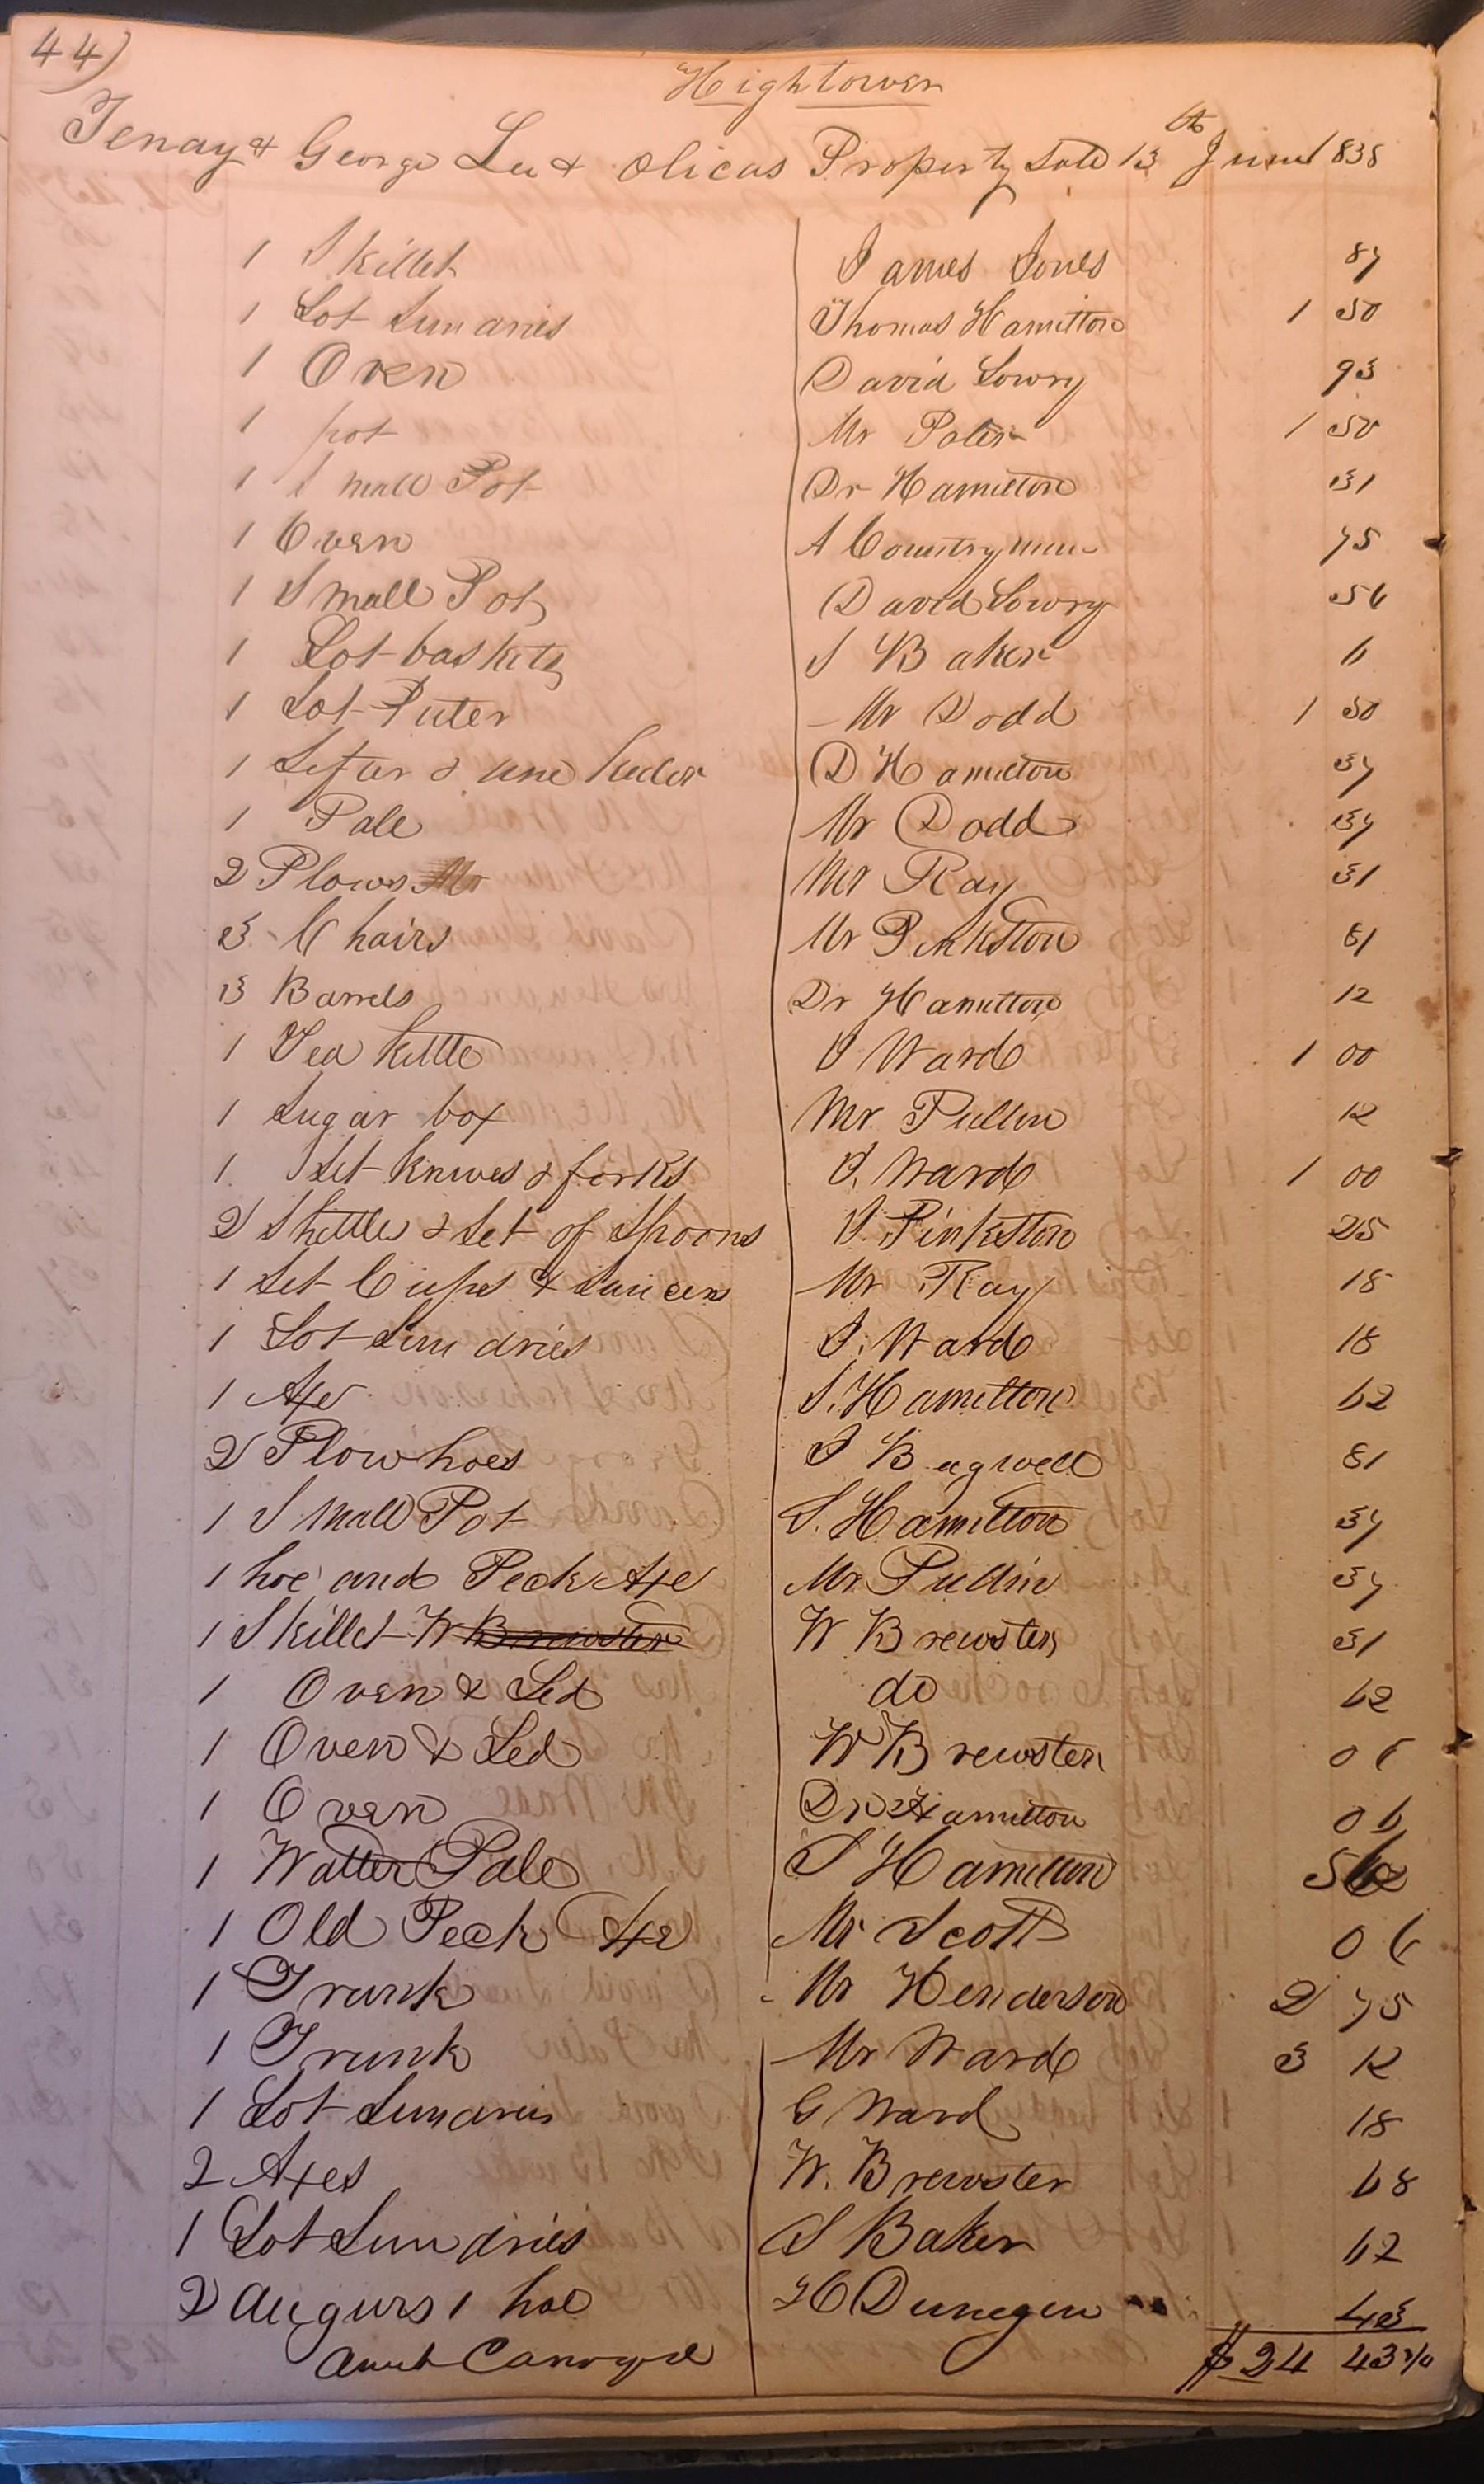 44)
Hightower
Tenay & George Lee & Olicas Property Sale 13th June 1838
1 Skillet James Jones 87
1 Lot Sundries Thomas Hamilton 1 50
1 Oven David Lowry 93
1 pot Mr 1 50
1 Small Pot Dr Hamilton 31
1 Oven A Countryman 75
1 Small Pot David Lowry 56
1 Lot baskets S Baker 6
1 Lot Puter Mr Dodd 1 50
1 Sifter & one D Hamilton 37
1 Pale Mr Dodd 37
2 Plows Mr Mr Ray 31
3 Chairs Mr Pinkston 81
3 Barrels Dr Hamilton 12
1 Tea Kettle J Ward 1 00
1 Sugar box Mr Pullin 12
1 Set Knives & forks J. Ward 1 00
2 Kettles & Set of Spoons J. Pinkston 25
1 Set Cups & Saucers Mr Ray 18
1 Lot Sundries J. Ward 18
1 Axe S. Hamilton 62
2 Plow hoes J Bagwell 81
1 Small Pot S. Hamilton 37
1 hoe and Peck Axe Mr Pullin 37
1 Skillet W Brewster W Brewster 31
1 Oven & Led do 62
1 Oven & Led W Brewster 06
1 Oven Dr Hamilton 06
1 Watter Pale S Hamilton 56
1 Old Peck Axe Mr Scott 06
1 Trunk Mr Henderson 2 75
1 Trunk Mr Ward 3 12
1 Lot Sundries G Ward 18
2 Axes W. Brewster 68
1 Lot Sundries S Baker 62
2 Augurs 1 hoe H Dunegin 43
Amt Carried $24 43 3/4